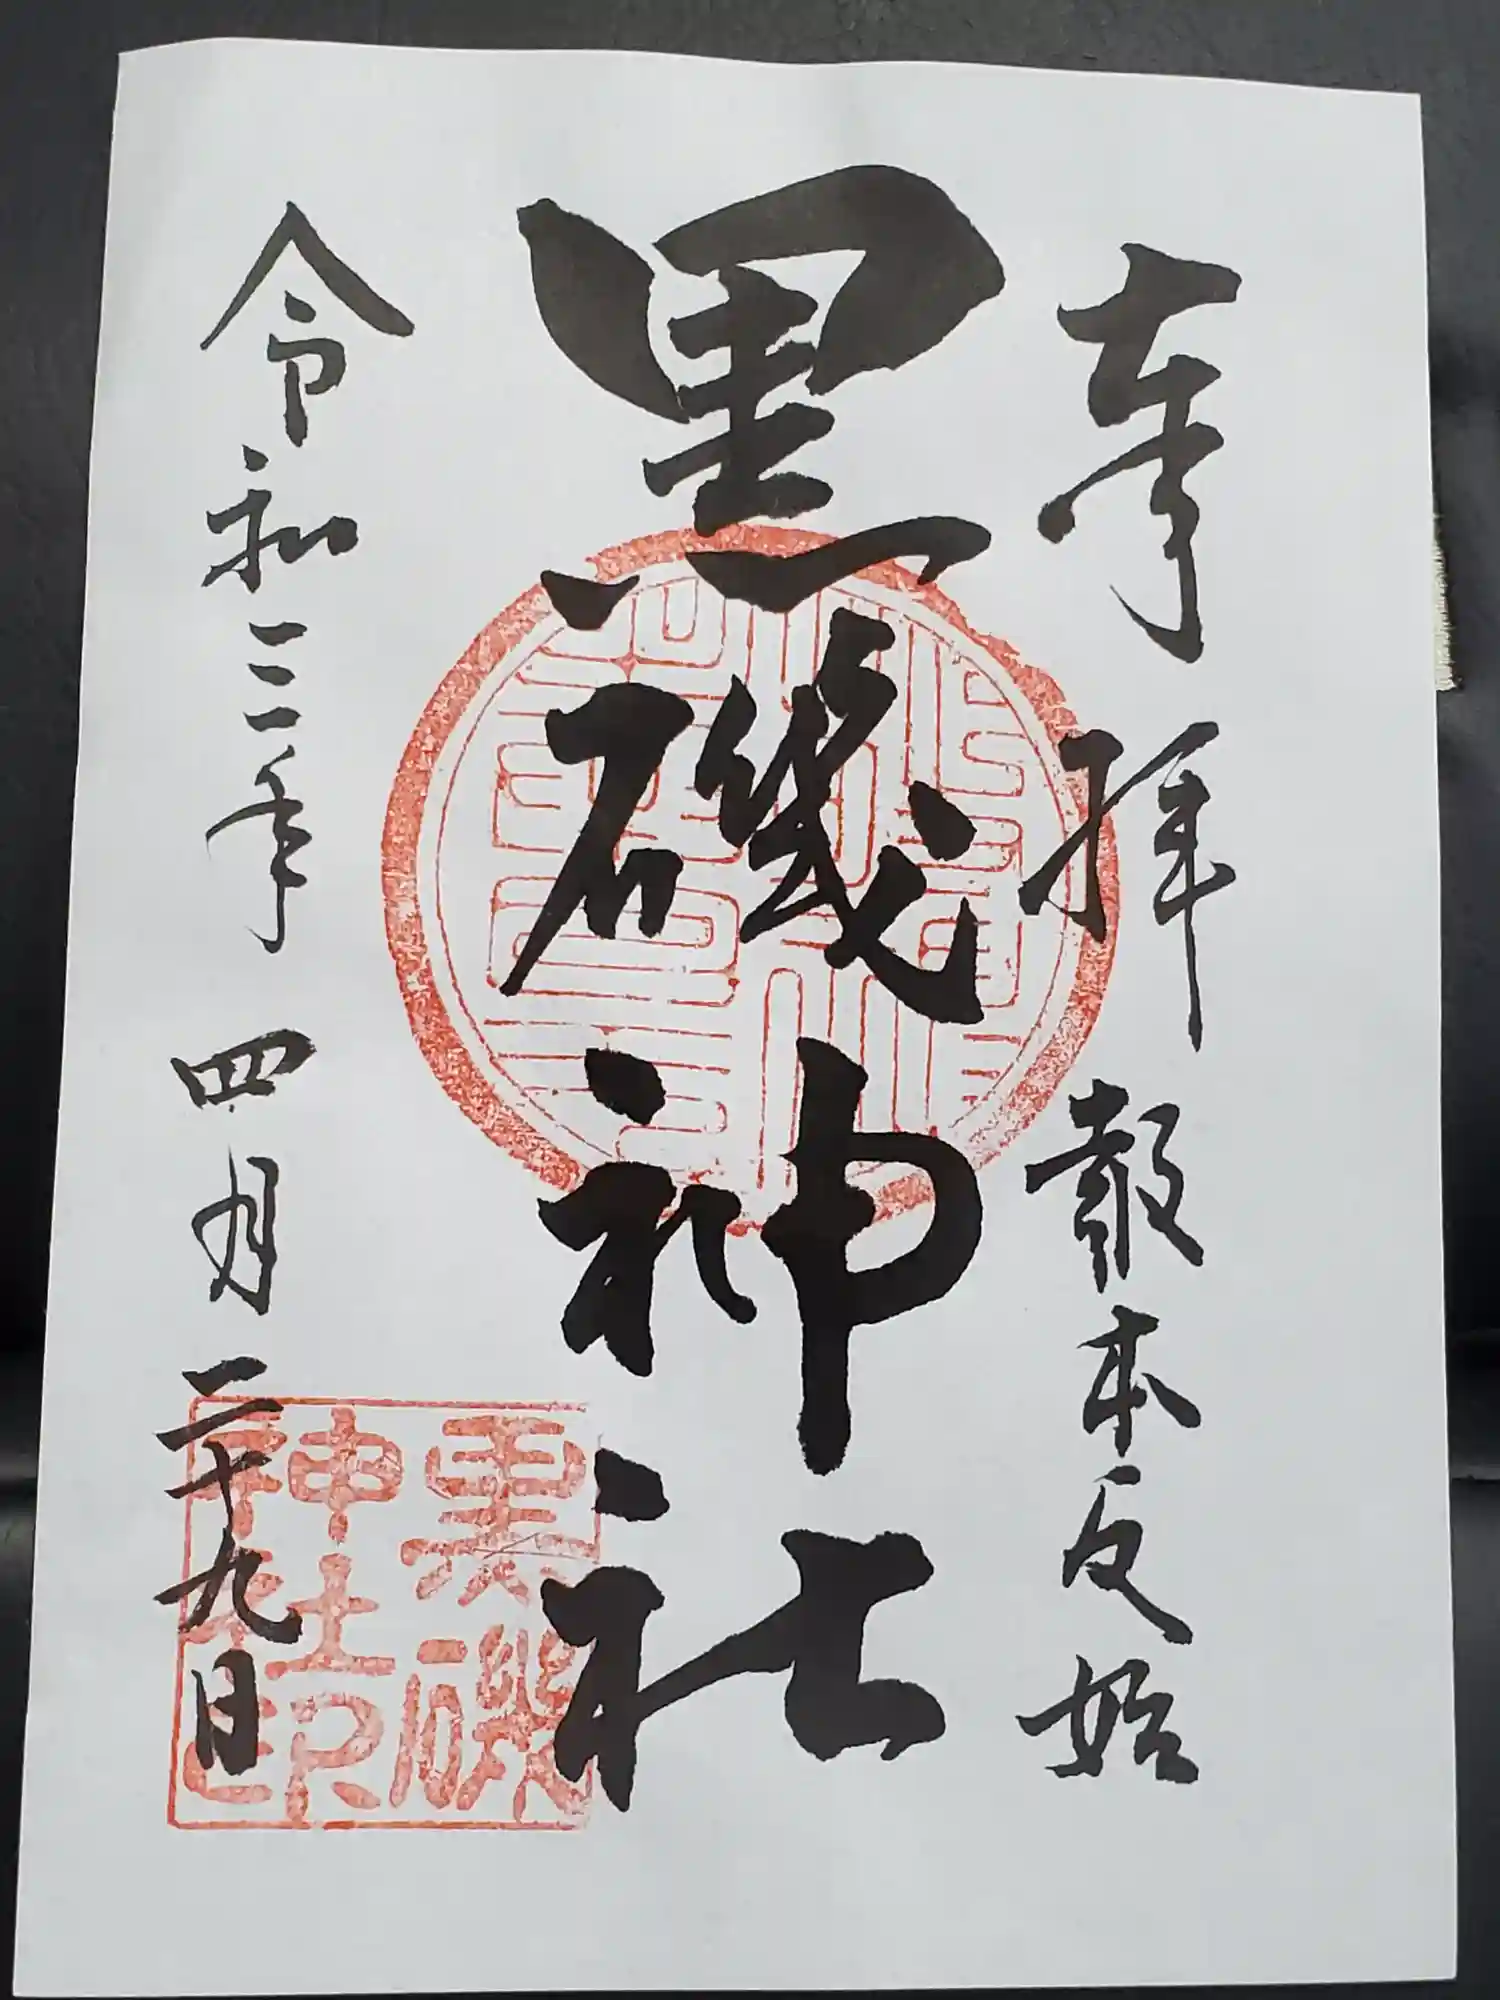 奉拝 報本反始
黒磯神社
令和三年 四月二十九日
黒磯
神社
印